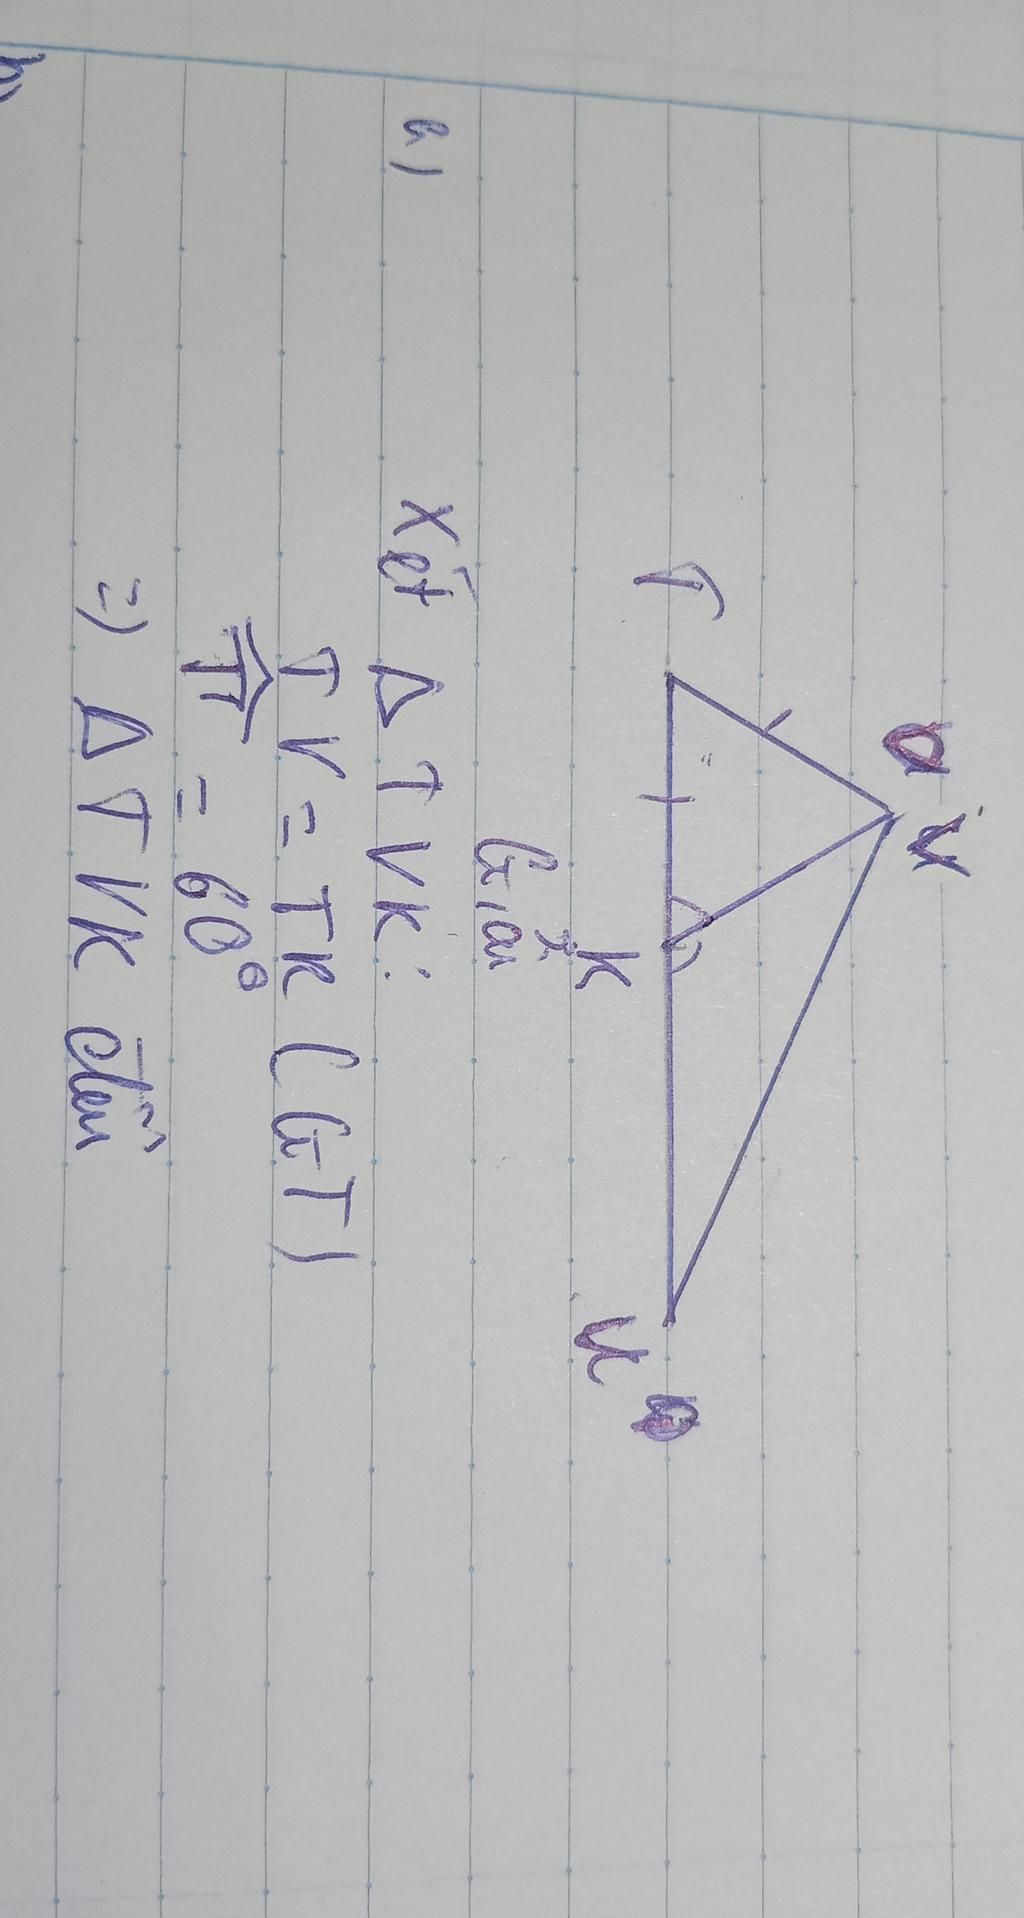 V
T
K
U
Giải
a) Xét Δ TVK:
TV = TK (GT)
T̂ = 60°
=) Δ TVK đều
b)